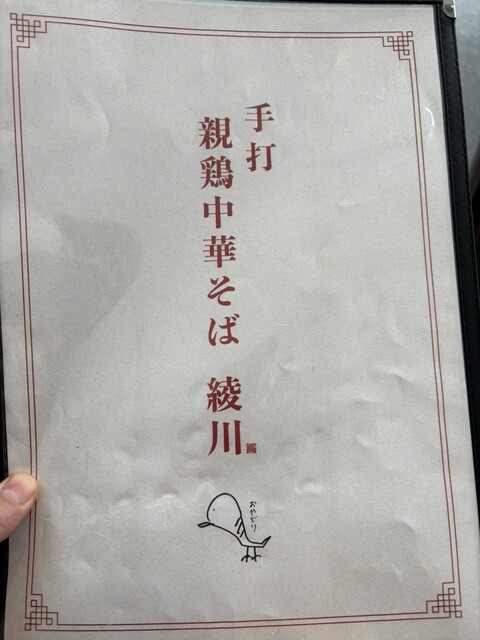 手打
親鶏中華そば 綾川
おやどり